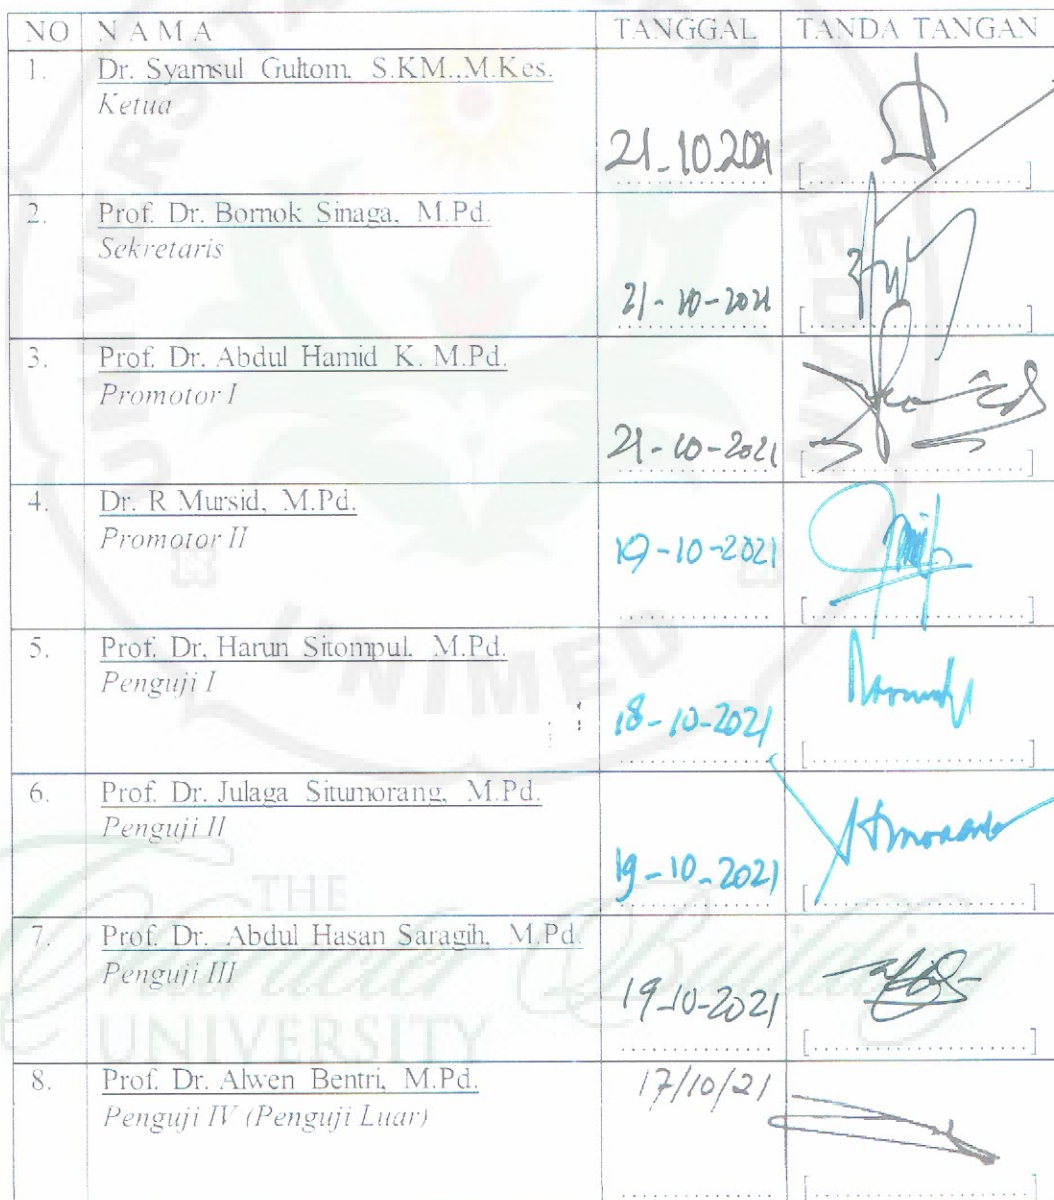 NO N A M A TANGGAL TANDA TANGAN
1. Dr. Syamsul Gultom, S.KM.,M.Kes.
Ketua
21-10.2021
2. Prof. Dr. Bornok Sinaga, M.Pd.
Sekretaris
21-10-2021
3. Prof. Dr. Abdul Hamid K. M.Pd.
Promotor I
21-10-2021
4. Dr. R Mursid, M.Pd.
Promotor II
19-10-2021
5. Prof. Dr. Harun Sitompul. M.Pd.
Penguji I
18-10-2021
6. Prof. Dr. Julaga Situmorang, M.Pd.
Penguji II
19-10-2021
7. Prof. Dr. Abdul Hasan Saragih, M.Pd.
Penguji III
19-10-2021
8. Prof. Dr. Alwen Bentri, M.Pd.
17/10/21
Penguji IV (Penguji Luar)
UNIVERSITAS NEGERI MEDAN
UNIMED
THE
Character Building
UNIVERSITY